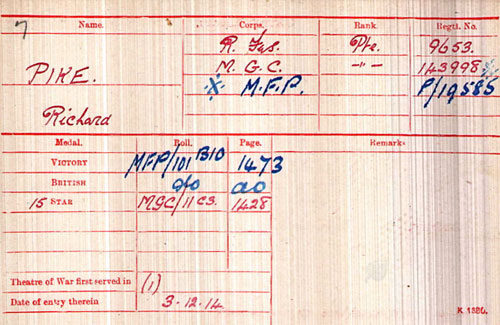 7
Name. Corps. Rank. Regtl. No.
R. Fus. Pte. 9653.
PIKE. M. G. C. -"- 143998
※ M.F.P. P/19585
Richard
Medal. Roll. Page. Remarks
VICTORY MFP/101 B10 1473
BRITISH do do
15 STAR MGC/11 C3. 1428
Theatre of War first served in (1)
Date of entry therein 3-12-14
K 1380.